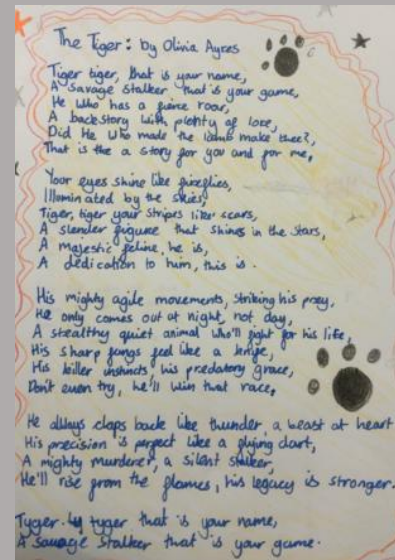 The Tiger: by Olivia Ayres
Tiger tiger, that is your name,
A savage stalker that is your game,
He who has a fierce roar,
A backstory with plenty of lore,
Did He who made the lamb make thee?,
That is the a story for you and for me,
Your eyes shine like fireflies,
Illuminated by the skies,
Tiger, tiger your stripes like scars,
A slender figure that shines in the stars,
A majestic feline, he is,
A dedication to him, this is.
His mighty agile movements, striking his prey,
He only comes out at night, not day,
A stealthy quiet animal who'll fight for his life,
His sharp fangs feel like a knife,
His killer instincts, his predatory grace,
Don't even try, he'll win that race,
He always claps back like thunder, a beast at heart
His precision is perfect like a flying dart,
A mighty murderer, a silent stalker,
He'll rise from the flames, his legacy is stronger.
Tyger tyger that is your name,
A savage stalker that is your game.